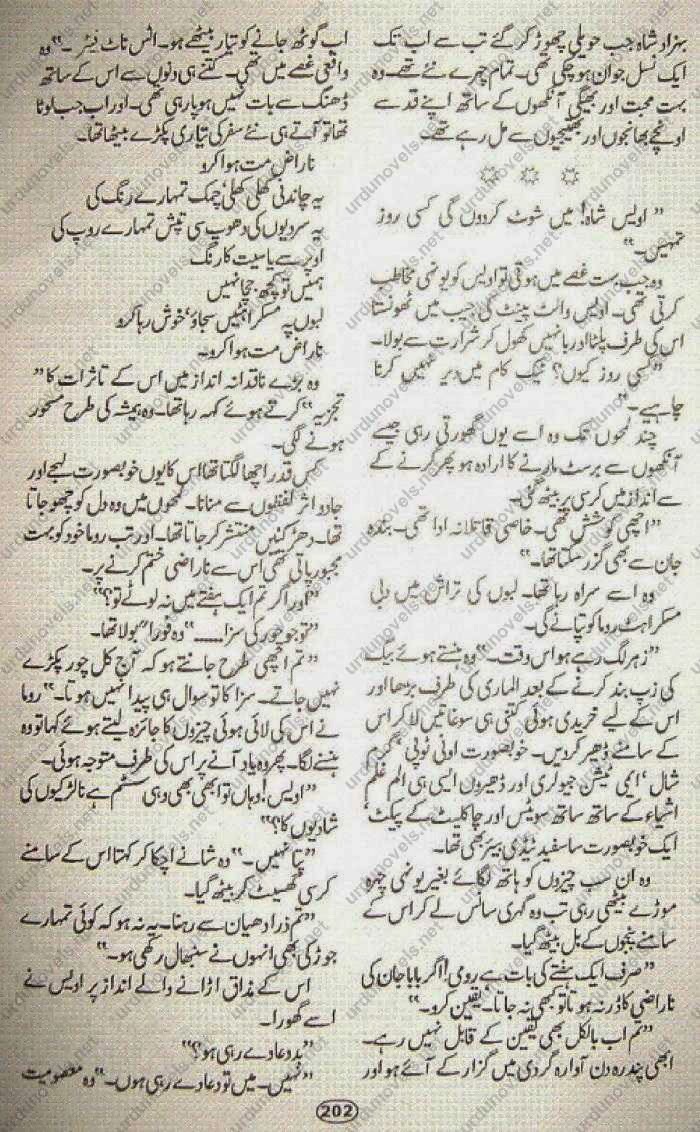 بہزاد شاہ جب حویلی چھوڑ کر گئے تب سے اب تک
ایک نسل جوان ہو چکی تھی۔ تمام چہرے نئے تھے۔ وہ
بہت محبت اور بھیگی آنکھوں کے ساتھ اپنے قد سے
اونچے بھانجوں اور بھتیجیوں سے مل رہے تھے۔
”اویس شاہ! میں شوٹ کردوں گی کسی روز
تمہیں۔“
وہ جب بہت غصے میں ہوتی تو اویس کو یونہی مخاطب
کرتی تھی۔ اویس والٹ پینٹ کی جیب میں ٹھونستا
اس کی طرف پلٹا اور بانہیں کھول کر شرارت سے بولا۔
”کسی روز کیوں؟ نیک کام میں دیر نہیں کرنا
چاہیے۔“
چند لمحوں تک وہ اسے یوں گھورتی رہی جیسے
آنکھوں سے برسٹ مارنے کا ارادہ ہو پھر گرنے کے
سے انداز میں کرسی پر بیٹھ گئی۔
”اچھی کوشش تھی۔ خاصی قاتلانہ ادا تھی۔ بندہ
جان سے بھی گزر سکتا تھا۔“
وہ اسے سراہ رہا تھا۔ لبوں کی تراش میں دبی
مسکراہٹ روما کو تپانے گی۔
”زہر لگ رہے ہو اس وقت۔“ وہ ہنستے ہوئے بیگ
کی زپ بند کرنے کے بعد الماری کی طرف بڑھا اور
اس کے لیے خریدی ہوئی کتنی ہی سوغاتیں لا کر اس
کے سامنے ڈھیر کردیں۔ خوبصورت اونی ٹوپی، گرم
شال، ایمی ٹیشن جیولری اور ڈھیروں ایسی ہی الم غلم
اشیاء کے ساتھ ساتھ سوئٹس اور چاکلیٹ کے پیکٹ،
ایک خوبصورت سا سفید ٹیڈی بیئر بھی تھا۔
وہ ان سب چیزوں کو ہاتھ لگائے بغیر یونہی چہرہ
موڑے بیٹھی رہی تب وہ گہری سانس لے کر اس کے
سامنے پنجوں کے بل بیٹھ گیا۔
”صرف ایک ہفتے کی بات ہے رومی! اگر باباجان کی
ناراضی کا ڈر نہ ہوتا تو کبھی نہ جاتا۔ یقین کرو۔“
”تم اب بالکل بھی یقین کے قابل نہیں رہے۔
ابھی پندرہ دن آوارہ گردی میں گزار کے آئے ہو اور
اب گوٹھ جانے کو تیار بیٹھے ہو۔ اٹس ناٹ فیئر۔“ وہ
واقعی غصے میں تھی۔ کتنے ہی دنوں سے اس کے ساتھ
ڈھنگ سے بات نہیں ہو پا رہی تھی۔ اور اب جب لوٹا
تھا تو آتے ہی نئے سفر کی تیاری پکڑے بیٹھا تھا۔
ناراض مت ہوا کرو
یہ چاندنی کھلی کھلی، چمک تمہارے رنگ کی
یہ سردیوں کی دھوپ سی تپش تمہارے روپ کی
اوپر سے یاسیت کا رنگ
ہمیں تو کچھ جچا نہیں
لبوں پہ مسکراہٹیں سجاؤ، خوش رہا کرو
ناراض مت ہوا کرو۔
وہ بڑے ناقدانہ انداز میں اس کے تاثرات کا ”
تجزیہ“ کرتے ہوئے کہہ رہا تھا۔ وہ ہمیشہ کی طرح مسحور
ہونے لگی۔
کس قدر اچھا لگتا تھا اس کا یوں خوبصورت لہجے اور
جادو اثر لفظوں سے منانا۔ لمحوں میں وہ دل کو چھو جاتا
تھا۔ دھڑکنیں منتشر کر جاتا تھا۔ اور تب روما خود کو بہت
مجبور پاتی تھی اس سے ناراضی ختم کرنے پر۔
”اور اگر تم ایک ہفتے میں نہ لوٹے تو؟“
”تو جو چور کی سزا......“ وہ فوراً“ بولا تھا۔
”تم اچھی طرح جانتے ہو کہ آج کل چور پکڑے
نہیں جاتے۔ سزا کا تو سوال ہی پیدا نہیں ہوتا۔“ روما
نے اس کی لائی ہوئی چیزوں کا جائزہ لیتے ہوئے کہا تو وہ
ہنسنے لگا۔ پھر وہ یاد آنے پر اس کی طرف متوجہ ہوئی۔
”اویس! وہاں تو ابھی بھی وہی سسٹم ہے نا لڑکیوں کی
شادیوں کا؟“
”پتا نہیں۔“ وہ شانے اچکا کر کہتا اس کے سامنے
کرسی گھسیٹ کر بیٹھ گیا۔
”تم ذرا دھیان سے رہنا۔ یہ نہ ہو کہ کوئی تمہارے
جوڑ کی بھی انہوں نے سنبھال رکھی ہو۔“
اس کے مذاق اڑانے والے انداز پر اویس نے
اسے گھورا۔
”بددعا دے رہی ہو؟“
”نہیں۔ میں تو دعا دے رہی ہوں۔“ وہ معصومیت
202
urdunovels.net